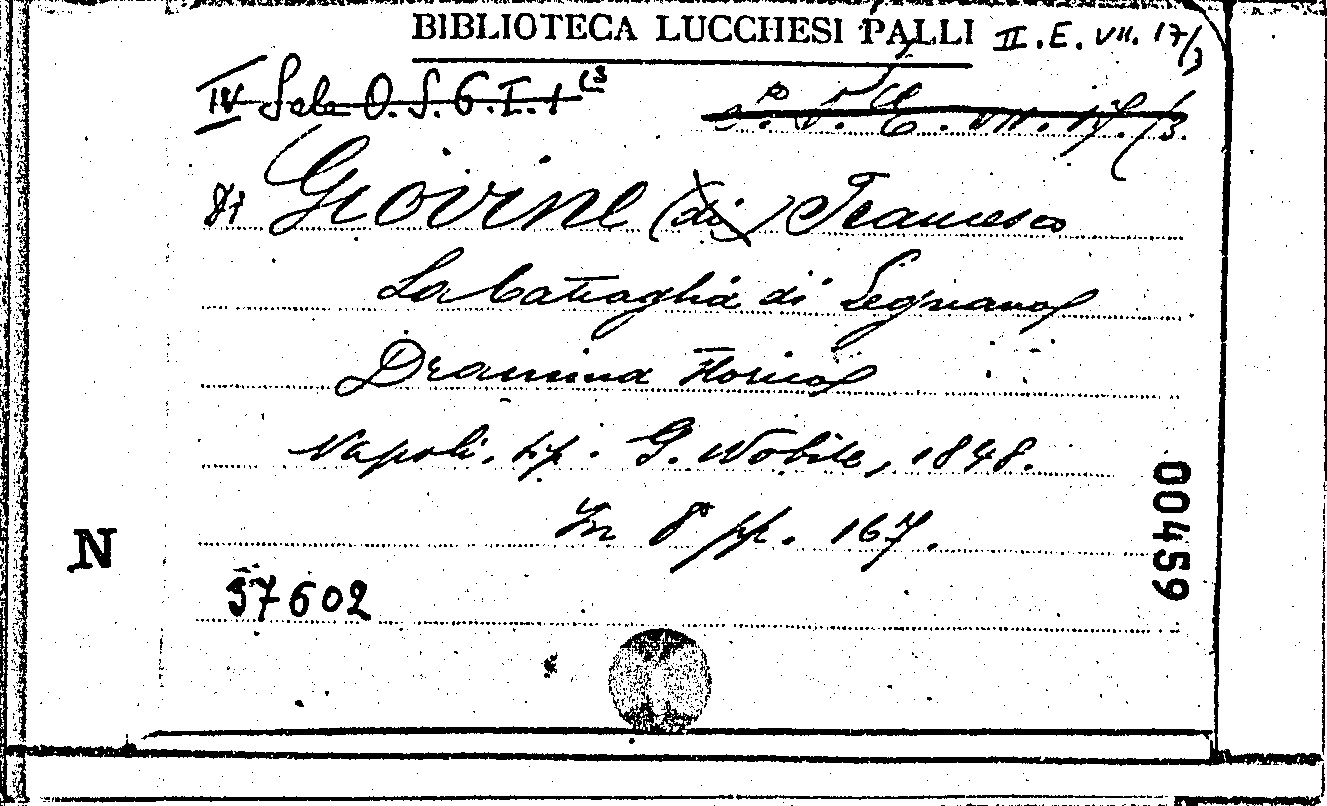 BIBLIOTECA LUCCHESI PALLI II.E.VII.17/3
IV Sala O.S.6.I.1(3
VII.17.(3.
Di Giovine (di) Francesco
La battaglia di Legnano
Dramma storico
Napoli, tip. G. Nobile, 1848.
In 8° pp. 167.
N
00459
57602